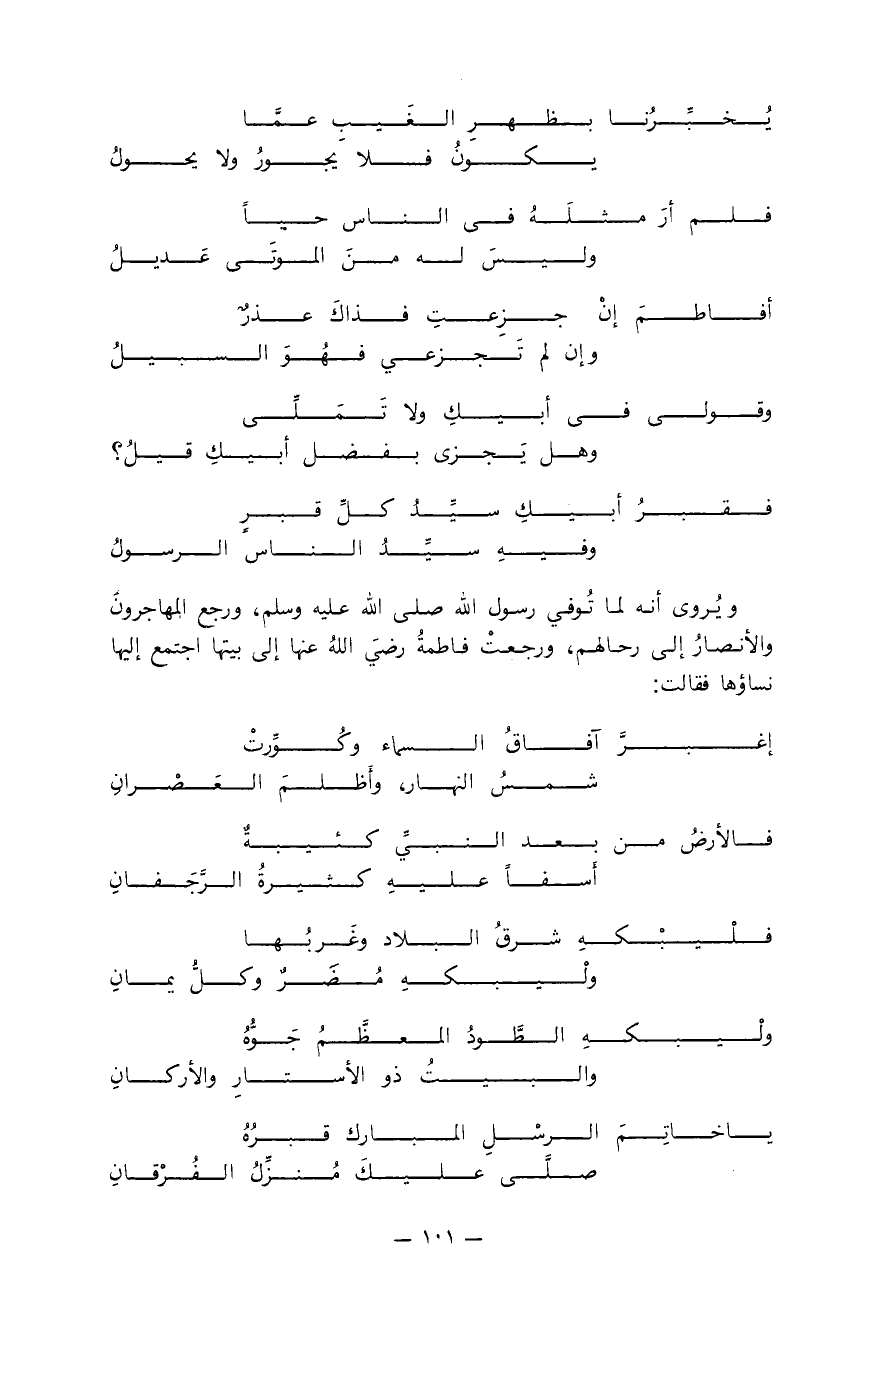 يُخبِّرُنا بظهرِ الغَيبِ عمَّا
يكونُ فلا يجورُ ولا يحولُ
فلم أرَ مثلَهُ فى الناس حياً
وليسَ له منَ الموتَى عَديلُ
أفاطمَ إنْ جزِعتِ فذاكَ عذرٌ
وإن لم تَجزعي فهُوَ السبيلُ
وقولى فى أبيكِ ولا تَمَلِّى
وهل يَجزى بفضل أبيكِ قيلُ؟
فقبرُ أبيكِ سيِّدُ كلِّ قبرٍ
وفيهِ سيِّدُ الناس الرسولُ
ويُروى أنه لما تُوفي رسول الله صلى الله عليه وسلم، ورجع المهاجرونَ
والأنصارُ إلى رحالهم، ورجعتْ فاطمةُ رضيَ اللهُ عنها إلى بيتها اجتمع إليها
نساؤها فقالت:
إغبرَّ آفاقُ السماء وكُوِّرتْ
شمسُ النهار، وأَظلمَ العَصْرانِ
فالأرضُ من بعد النبيِّ كئيبةٌ
أَسفاً عليهِ كثيرةُ الرَّجَفانِ
فلْيبْكهِ شرقُ البلاد وغَربُها
ولْيبكهِ مُضَرٌ وكلُّ يمانِ
ولْيبكهِ الطَّودُ المعظَّمُ جَوُّهُ
والبيتُ ذو الأستارِ والأركانِ
ياخاتِمَ الرسْلِ المبارك قبرُهُ
صلَّى عليكَ مُنزِّلُ الفُرْقانِ
— ١٠١ —